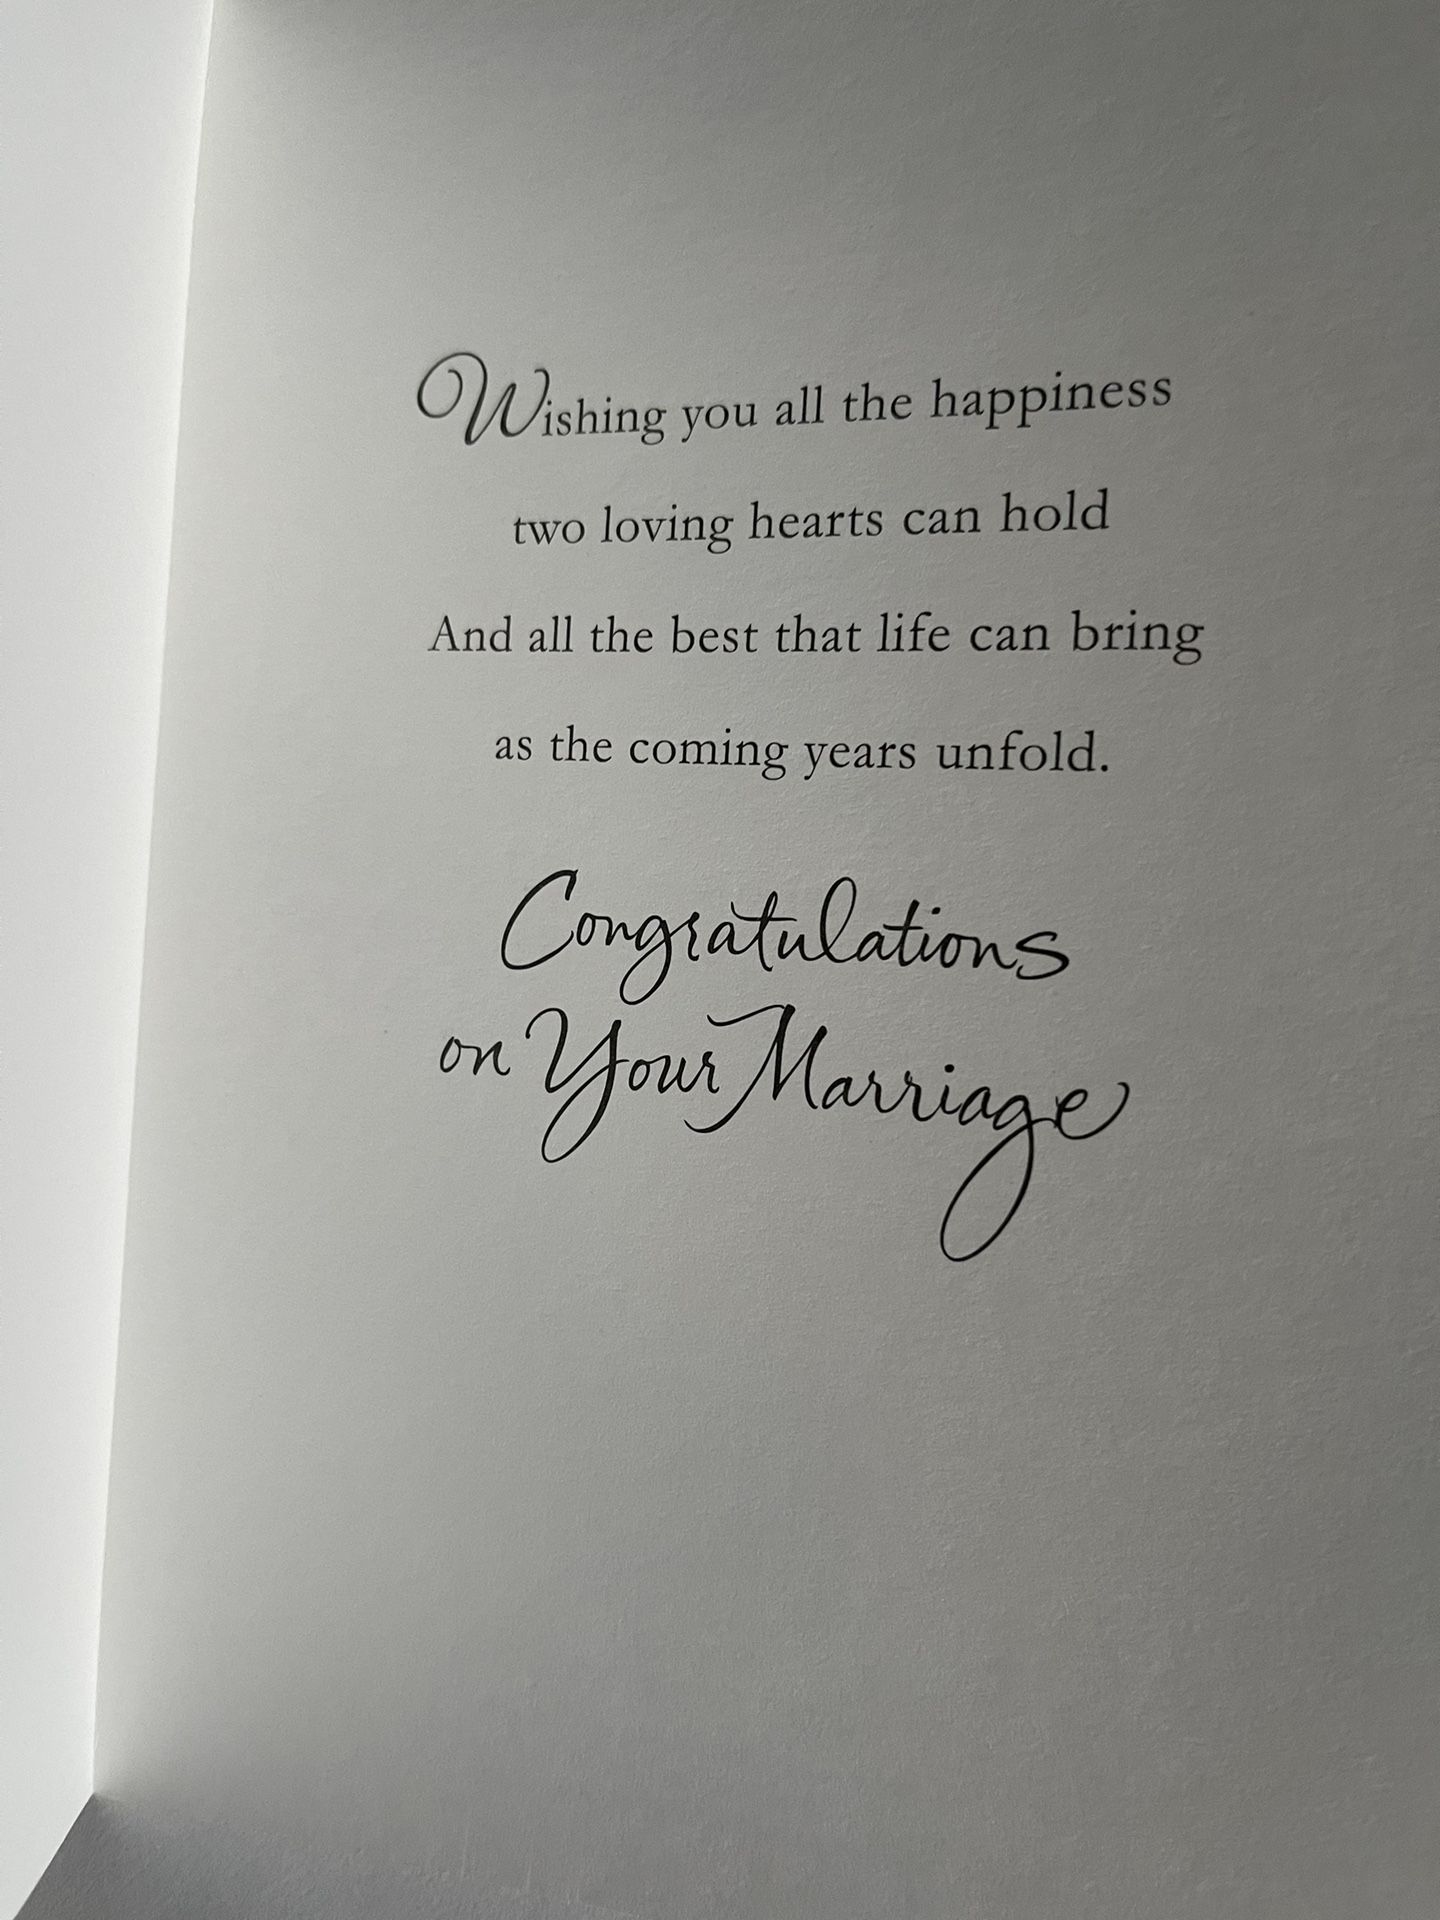 Wishing you all the happiness
two loving hearts can hold
And all the best that life can bring
as the coming years unfold.
Congratulations
on Your Marriage